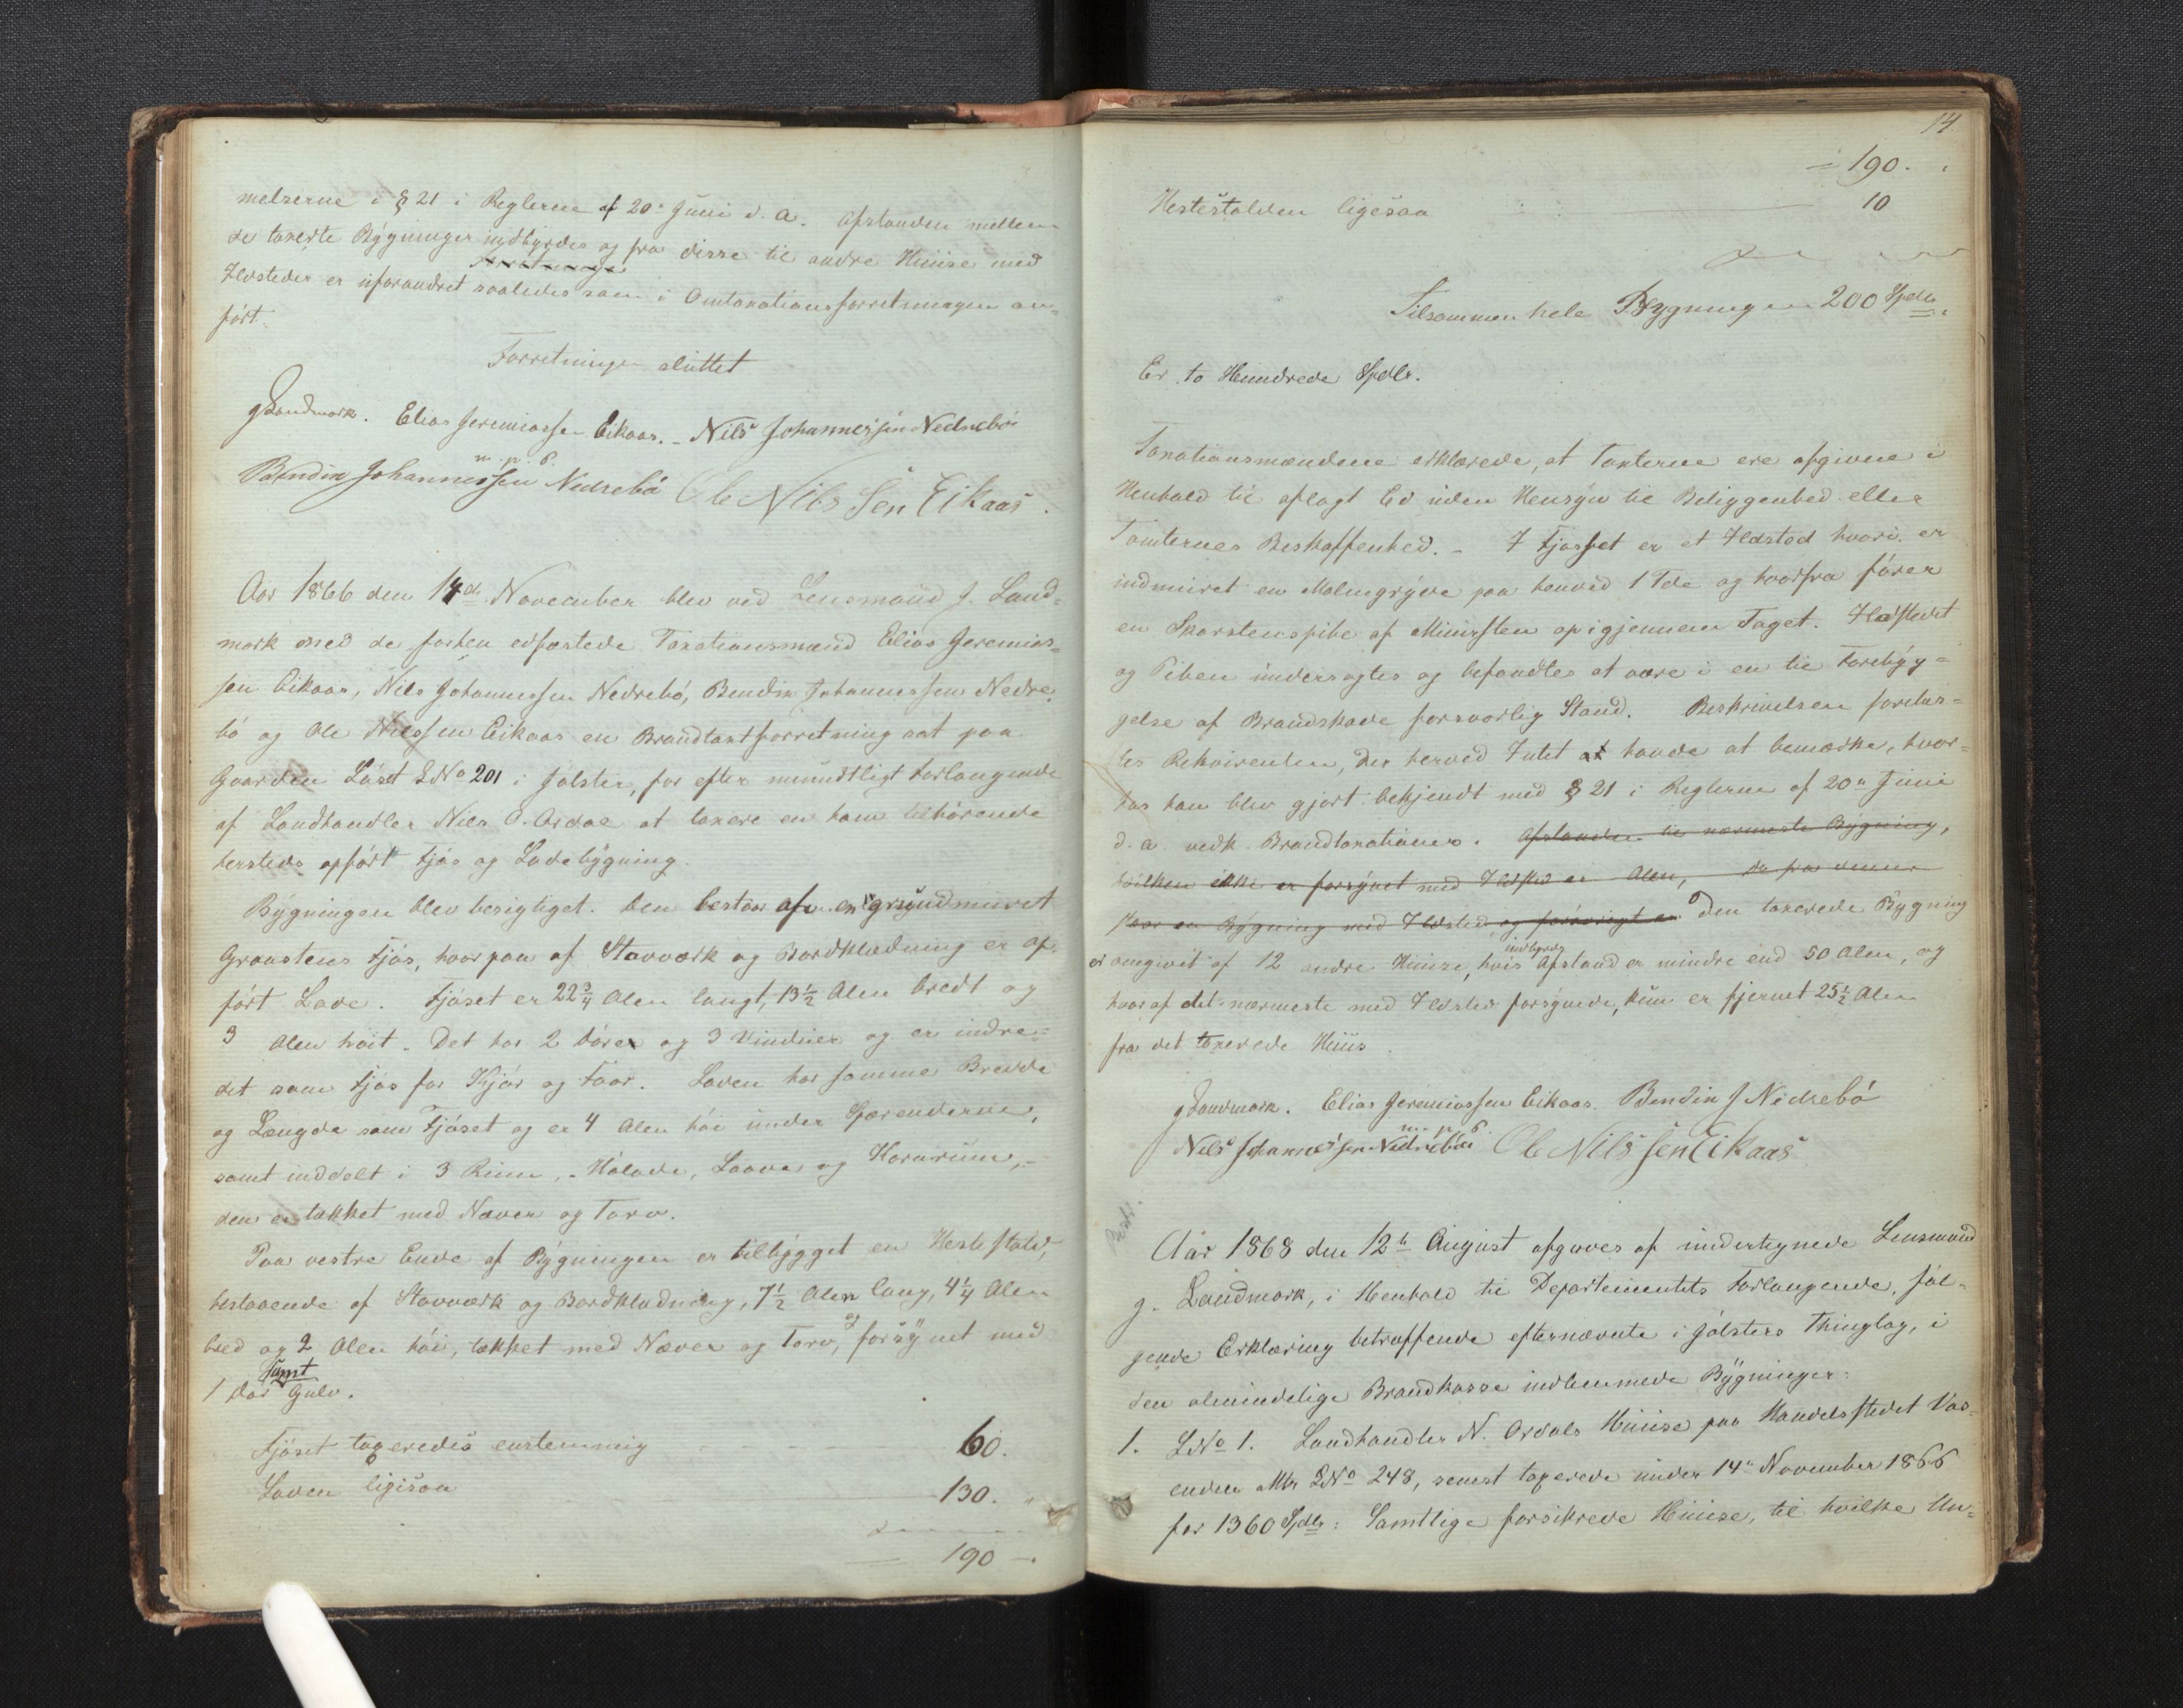 melserne i § 21 i Reglerne af 20de Juni d. a. Afstanden mellem
de taxerte Bygninger indbyrdes og fra disse til andre Huuse med
Ildsteder er uforandret saaledes som i Omtaxationsforretningen an=
ført.
Forretningen sluttet
J Landmark. Elias Jeremiassen Eikaas. - Nils Johannessen Nedrebø
m. p. P.
Bendix Johannessen Nedrebø Ole Nils Sen Eikaas.
Aar 1866 den 14de November blev ved Lensmand J. Land=
mark med de forhen edfæstede Taxationsmænd Elias Jeremias=
sen Eikaas, Nils Johannessen Nedrebø, Bendix Johannessen Nedre=
bø og Ole Nilssen Eikaas en Brandtaxtforretning sat paa
Gaarden Løset LNo 201 i Jølster, for efter mundtligt Forlangende
af Landhandler Niels O. Ordal at taxere en ham tilhørende
hersteds opført Fjøs og Ladebygning.
Bygningen blev besigtiget. Den bestaar af en grundmuret
Graastens Fjøs, hvorpaa af Stavværk og Bordklædning er op=
ført Lade. Fjøset er 22 3/4 Alen langt, 13 1/2 Alen bredt og
3 Alen høit. Det har 2 Døre og 3 Vinduer og er indre=
det som Fjøs for Kjør og Faar. Laden har samme Bredde
og Længde som Fjøset og er 4 Alen høi under Spærenderne,
samt inddelt i 3 Rum, - Hølade, Laave og Kornrum, -
den er tækket med Næver og Torv.
Paa vestre Ende af Bygningen er tilbygget en Hestestald,
bestaaende af Stavværk og Bordklædning, 7 1/2 Alen lang, 4 1/4 Alen
bred og 2 Alen høi, tækket med Næver og Torv, og forsynet med
1 Dør samt Gulv.
Fjøset taxeredes enstemmig 60.
Laden ligesaa 130. "
190 -.
14
190.
Hestestalden ligesaa 10
Tilsammen hele Bygningen 200 Spdlr.
Er to Hundrede Spdlr.
Taxationsmændene erklærede, at Taxterne ere afgivne i
Henhold til aflagt Ed uden Hensyn til Beliggenhed eller
Tomternes Beskaffenhed. - I Fjøset er et Ildsted hvori er
indmuret en Malmgryde paa henved 1 Tde og hvorfra fører
en Skorstenspibe af Muursten op igjennem Taget. Ildstedet
og Piben undersøgtes og befandtes at være i en til Forebyg=
gelse af Brandskade forsvarlig Stand. Beskrivelsen forelæs=
tes Rekvirenten, der herved Intet at havde at bemærke, hvor=
hos han blev gjort bekjendt med § 21 i Reglerne af 20de Juni
d. a. vedk. Brandtaxationer. Afstanden til nærmeste Bygning,
hvilken ikke er forsynet med Ildsted er Alen, da fra denne
staar en Bygning med Ildsted og forøvrigt er Den taxerede Bygning
er omgivet af 12 andre Huuse, hvis indbyrds Afstand er mindre end 50 Alen, og
hvoraf det nærmeste med Ildsted forsynede, kun er fjernet 25 1/2 Alen
fra det taxerede Huus.
J Landmark. Elias Jeremiassen Eikaas. Bendix J Nedrebø
m. p. P.
Nils Johannessen Nedrebø Ole Nils Sen Eikaas
Aar 1868 den 12te August afgaves af undertegnede Lensmand
J. Landmark, i Henhold til Departementets Forlangende, føl=
gende Erklæring betræffende efternævnte i Jølsters Thinglag, i
den almindelige Brandkasse indlemmede Bygninger:
1. LNo 1. Landhandler N. Ordals Huuse paa Handelsstedet Vas=
enden Mtr LNo 248, senest taxerede under 14de November 1866
for 1360 Spdlr: Samtlige forsikrede Huuse, til hvilke Un=